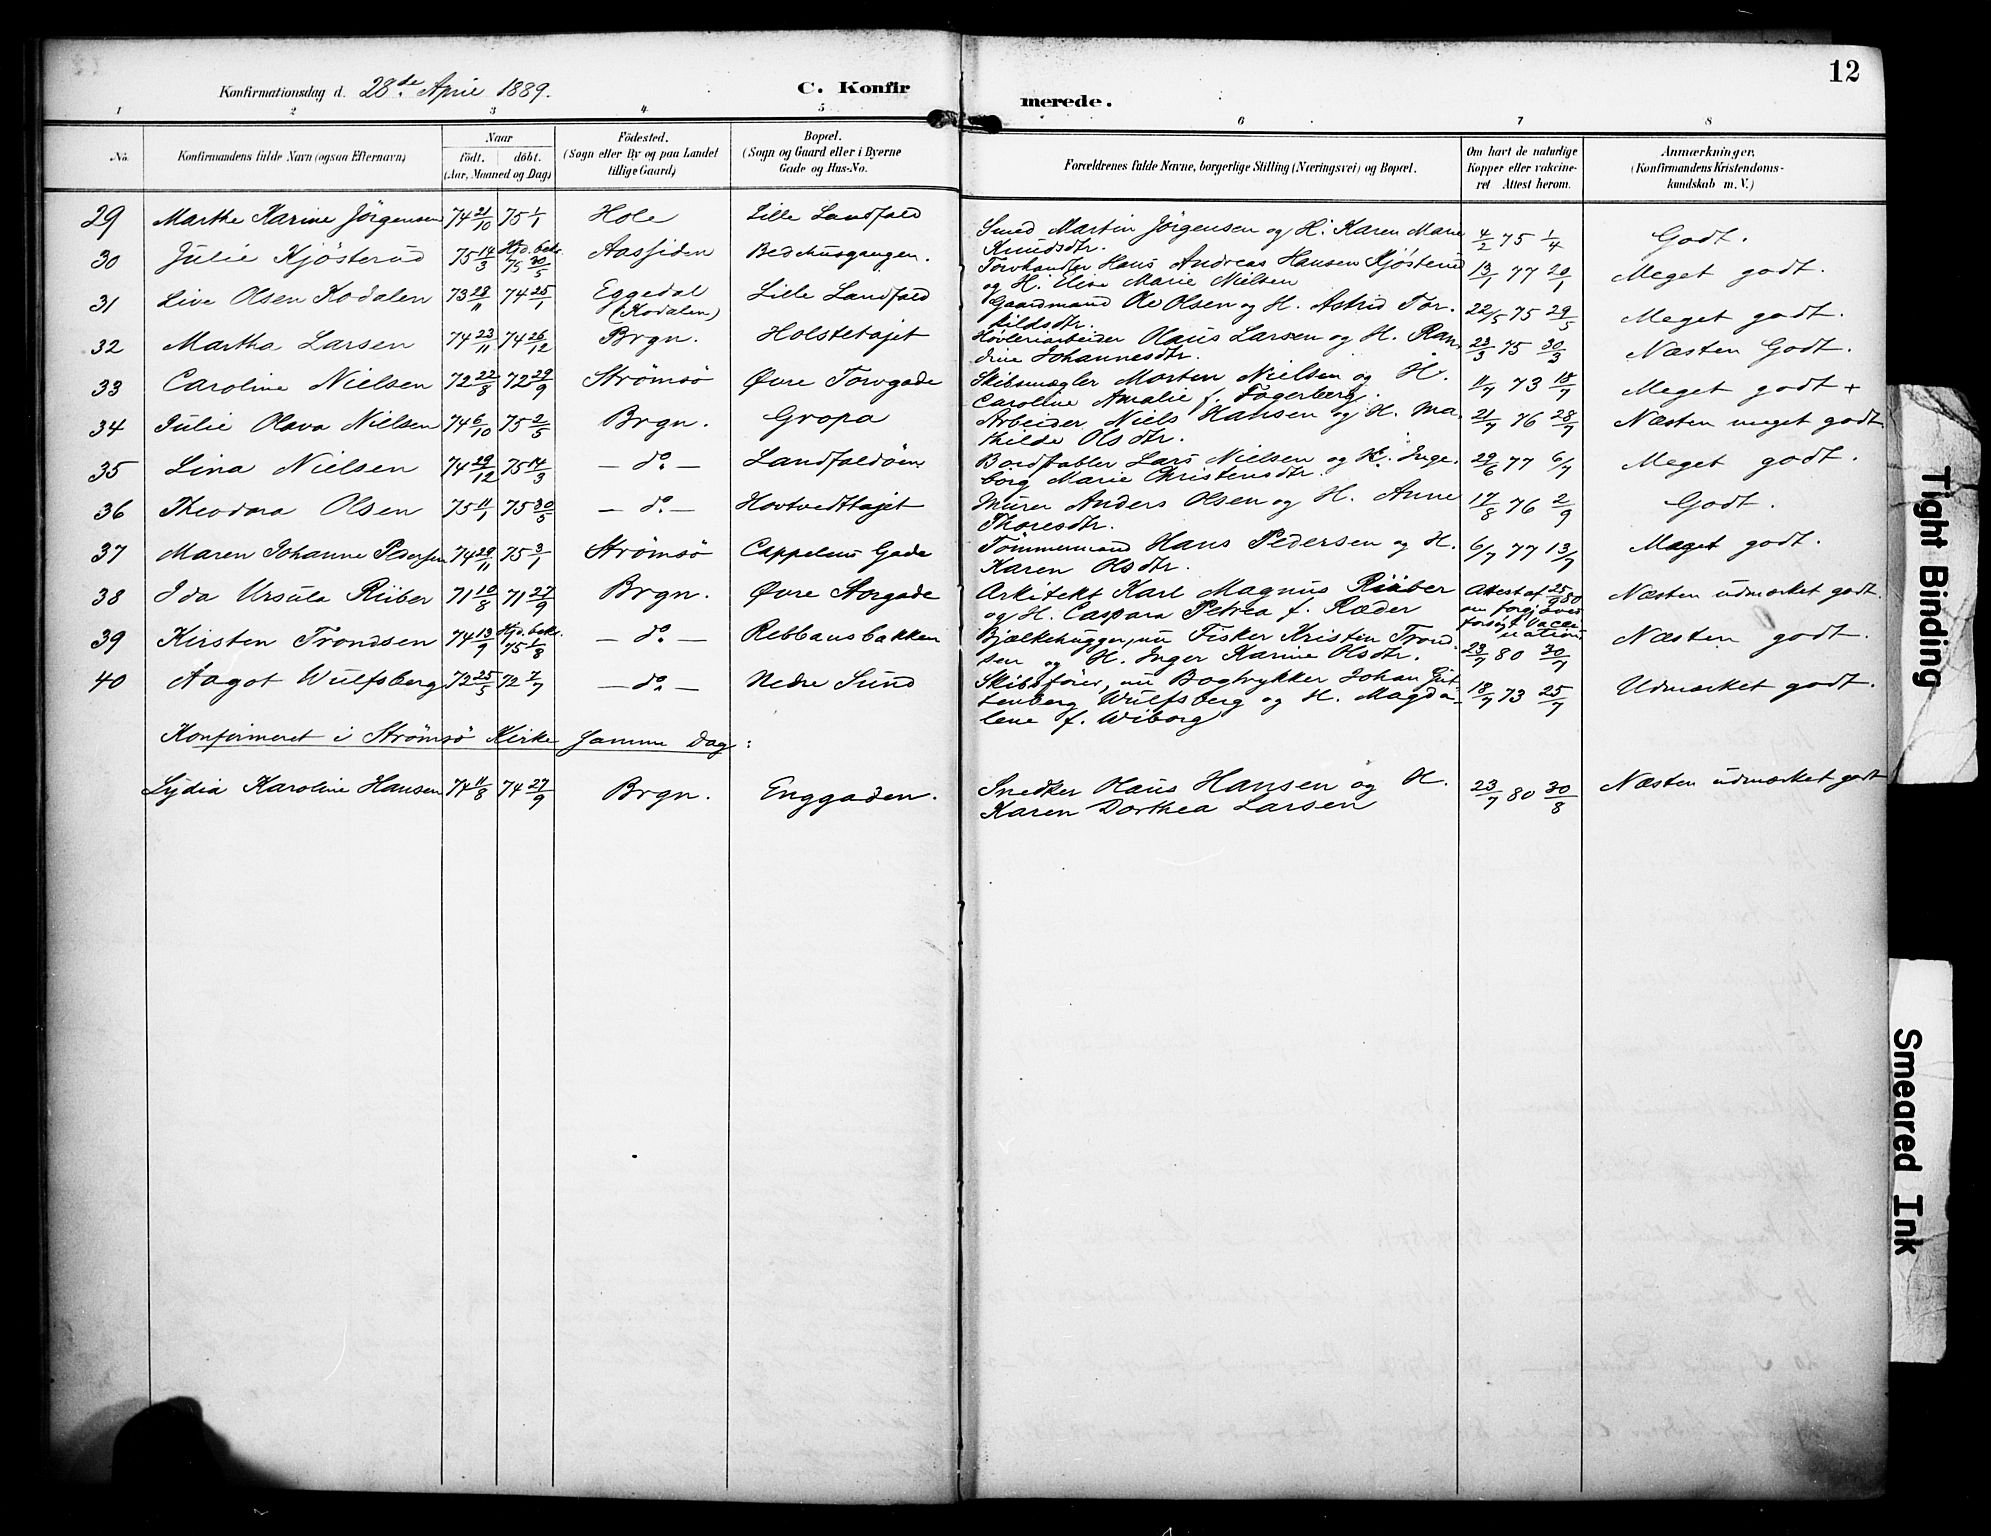 12
Konfirmationsdag d. 28de April 1889. C. Konfirmerede.
1 2 3 4 5 6 7 8
No. Konfirmandens fulde Navn (ogsaa Efternavn) Naar födt. döbt. (Aar, Maaned og Dag) Födested. (Sogn eller By og paa Landet tillige Gaard) Bopæl. (Sogn og Gaard eller i Byerne Gade og Hus-No. Forældrenes fulde Navne, borgerlige Stilling (Næringsvei) og Bopæl. Om havt de naturlige Kopper eller vakcineret Attest herom. Anmærkninger, (Konfirmandens Kristendomskundskab m. V.)
29 Marthe Karine Jörgensen 74 21/10 75 1/1 Hole Lille Landfald Smed Martin Jörgensen og H. Karen Marie Knudsdtr. 4/2 75 1/4 Godt.
30 Julie Kjösterud 75 14/3 Hjd. bekr. 75 30/5 Aassiden Bedehusgangen. Torvhandler Hans Andreas Hansen Kjösterud og H. Elise Marie Nielsen 13/1 77 20/1 Meget godt.
31 Live Olsen Kodalen 73 28/11 74 25/1 Eggedal (Kodalen) Lille Landfald Gaardmand Ole Olsen og H. Astrid Torkildsdtr. 22/5 75 29/5 Meget godt.
32 Martha Larsen 74 23/11 74 26/12 Brgn. Holstetojet Høvleriarbeider Hans Larsen og H. Randine Johannesdtr. 23/3 75 30/3 Næsten Godt.
33 Caroline Nielsen 72 22/8 72 29/9 Strömsö Øvre Torvgade Skibsmægler Morten Nielsen og H. Caroline Amalie f. Fagerberg. 11/7 73 18/7 Meget godt +
34 Julie Olava Nielsen 74 6/10 75 2/5 Brgn. Gropa Arbeider Niels Hansen og H. Mathilde Olsdtr. 21/7 76 28/7 Næsten meget godt
35 Lina Nielsen 74 29/12 75 14/3 — do — Landfaldöen Bordstabler Lars Nielsen og H. Ingeborg Marie Christensdtr. 29/6 77 6/7 Meget godt.
36 Theodora Olsen 75 11/1 75 30/5 — do — Hovtvedttojet Murer Anders Olsen og H. Anne Thoresdtr. 17/8 76 2/9 Godt.
37 Maren Johanne Pedersen 74 29/11 75 3/1 Strömsö Cappelens Gade Tömmermand Hans Pedersen og H. Karen Olsdtr. 6/7 77 13/7 Meget godt.
38 Ida Ursula Rüber 71 10/8 71 27/9 Brgn. Øvre Storgade Arkitekt Karl Magnus Rüber og H. Caspara Petrea f. Ræder Attest af 25/9 80 om forgj. forsøgt Vaccination Næsten udmærket godt.
39 Kirsten Trondsen 74 13/9 Hjd. bekr. 75 1/8 — do — Rebbansbakken Bjælkehugger, nu Fisker Kristin Trondsen og H. Inger Karine Olsdtr. 23/7 80 30/7 Næsten godt.
40 Aagot Wulfsberg 72 25/5 72 2/7 — do — Nedre Sund Skibsfører, nu Bogtrykker Johan Guttenberg Wulfsberg og H. Magdalene f. Wiborg 18/7 73 25/7 Udmærket godt.
Konfirmeret i Strömsö Kirke samme Dag:
Lydia Karoline Hansen 74 11/8 74 27/9 Brgn. Enggaden. Snedker Hans Hansen og H. Karen Dorthea Larsen 23/7 80 30/8 Næsten udmærket godt
Tight Binding
Smeared Ink